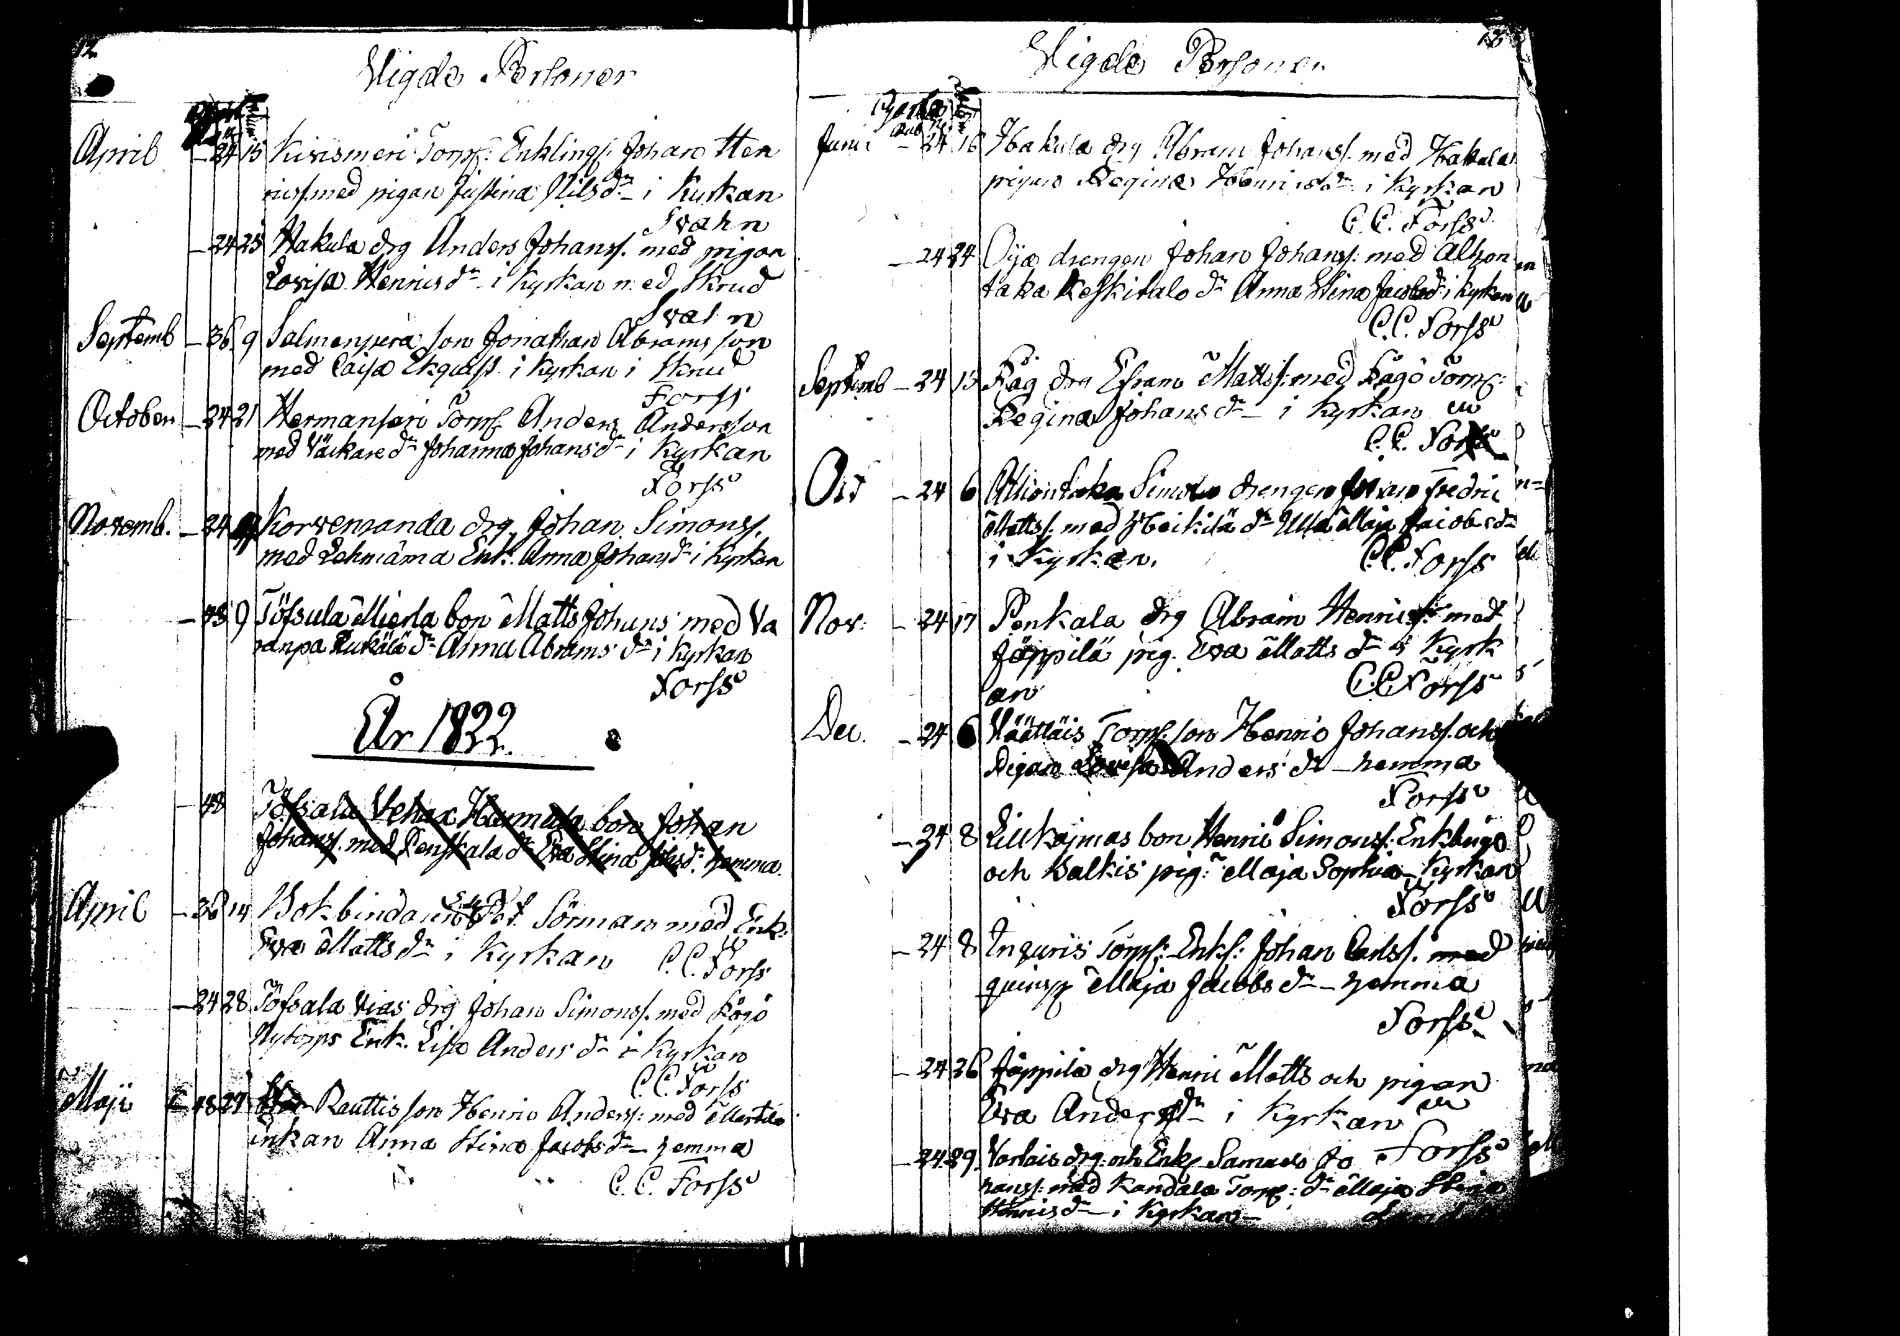 12
Wigde Personer
April 24 15 Kirismeri Torp: Enklingn Johan Hen
rics. med pigan Justina Nilsdr i Kyrkan
Svahn
24 25 Hakula drg Anders Johanss. med pigan
Lovisa Henricsdr i Kyrkan med Skrud
Svahn
Septemb 36 9 Salmenperä son Jonathan Abramsson
med Caisa Ekqvist i Kyrkan i Skrud
Forss
October 24 21 Hermansaari Torp. Anders Andersson
med Väckare dr Johanna Johansdr i Kyrkan
Forss
Novemb. 24 Korvenranda drg Johan Simonss.
med Lehmäma Enk. Anna Johansdr i Kyrkan
48 9 Töfsala Mierla bon Matts Johans med Va
ranpä dr Anna Abramsdr i Kyrkan
Forss
År 1822.
48 Töfsala Vehax bon Johan
Johanss. med Penskala dr Eva Stina hemma
April 36 14 Bokbindaren Sörman med Enk:
Eva Mattsdr i Kyrkan C. C. Forss
24 28 Töfsala Vias drg Johan Simonss. med Kågö
Nytorps Enk. Lisa Andersdr i Kyrkan
C. C. Forss
Maji 48 27 Rauttis son Henric Anderss: med Marttila
Enkan Anna Stina Jacobsdr hemma
C. C. Forss
13
Wigde Personer
Junii 24 16 Hakula drg Abram Johanss. med Hakula
pigan Regina Henricsdr i Kyrkan
C. C. Forss
24 24 Öijä drengen Johan Johanss: med Alhon
taka Keskitalo dr Anna Stina Jacobsdr i Kyrkan
C. C. Forss
Septemb 24 15 Kåg drg Efraim Mattss: med Kågö Torp:
Regina Johansdr i Kyrkan
C. C. Forss
Oct 24 6 Alhontaka Simola drengen Johan Fredric
Mattss. med Heikilä dr Ulla Maja Jacobsdr
i Kyrkan. C. C. Forss
Nov: 24 17 Penkala drg Abram Henrics: med
Jäppilä pig. Eva Mattsdr i Kyrk
an C. C. Forss
Dec. 24 6 Wäättäis Torp. son Henric Johanss. och
Pigan Lovisa Andersdr hemma
Forss
24 8 bon Henric Simonss: Enkling
och Valkis pig: Maja Sophia Kyrkan
Forss
24 8 Inguris Torp: Enkl: Johan Carlss. med
qvinsp Maja Jacobsdr hemma
Forss
24 26 Jäppilä drg Henric Matts och pigan
Eva Andersdr i Kyrkan
Forss
24 29 drg. och Enkl Samuel Jo
hanss: med Kandola Torp: dr Maja Stina
Henricsdr i Kyrkan